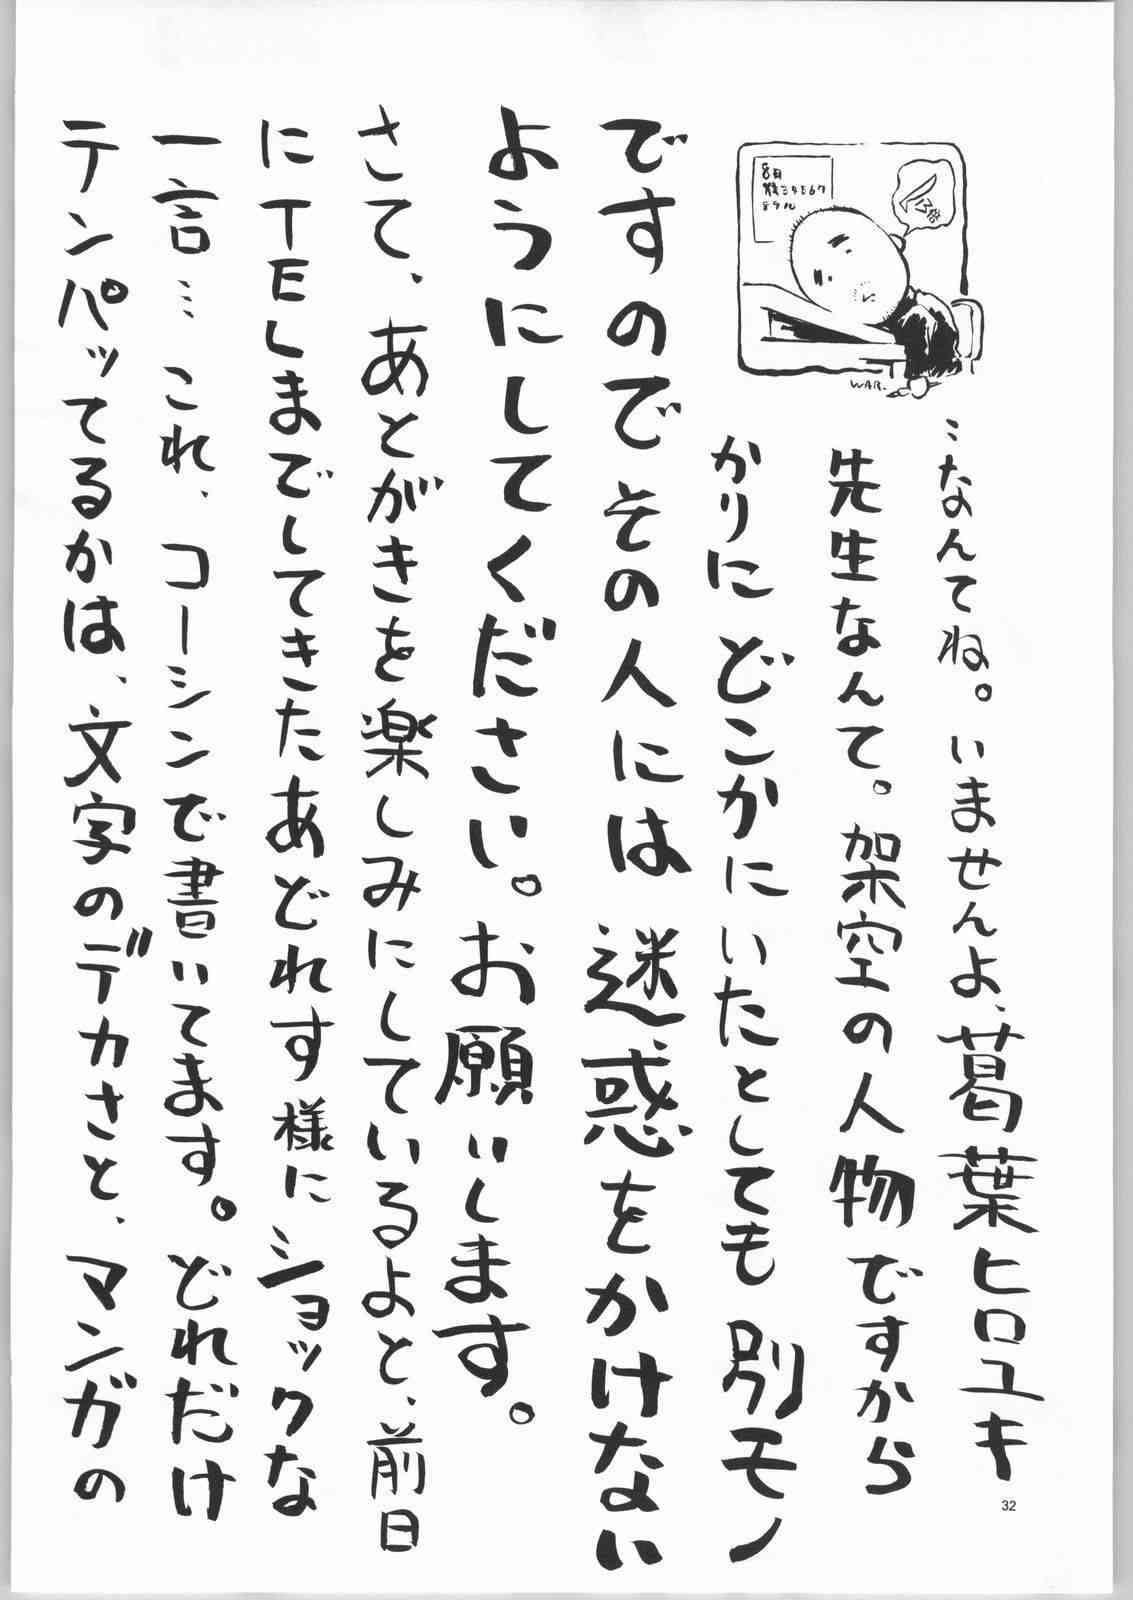 …なんてね。いませんよ、葛葉ヒロユキ
先生なんて。架空の人物ですから
かりにどこかにいたとしても別モノ
ですのでその人には迷惑をかけない
ようにしてください。お願いします。
さて、あとがきを楽しみにしているよと、前日
にTELまでしてきたあどれす様にショックな
一言… これ、コーションで書いてます。どれだけ
テンパッてるかは、文字のデカさと、マンガの
WAR.
32